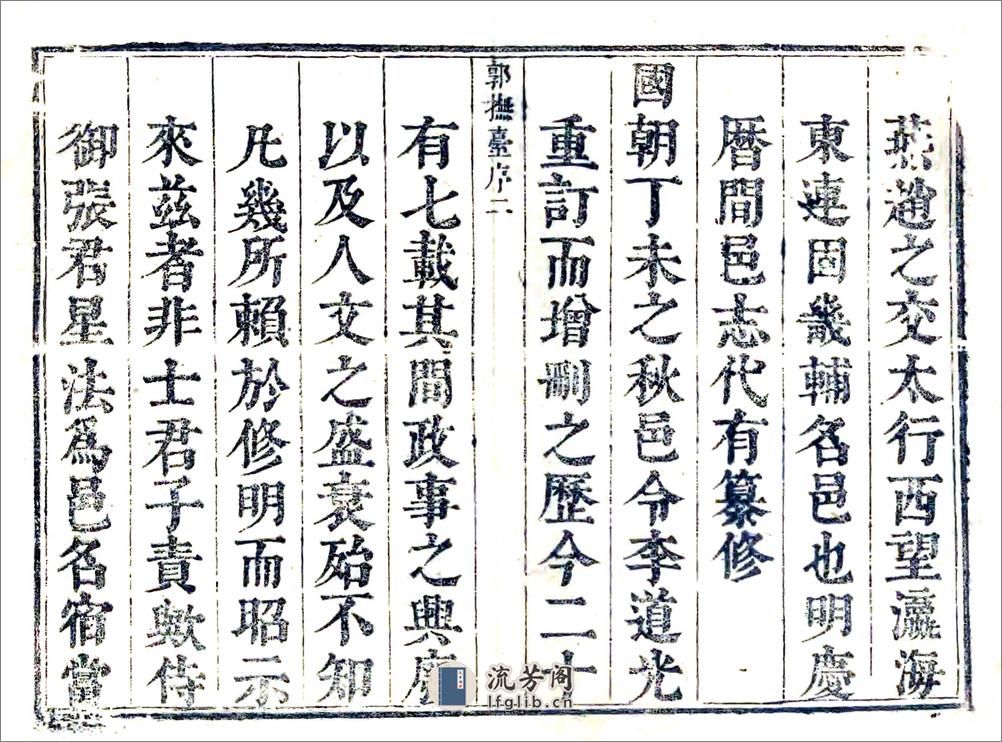 燕趙之交太行西望瀛海
東連固畿輔名邑也明慶
曆間邑志代有纂修
國朝丁未之秋邑令李道光
重訂而增刪之歷今二十
郭撫臺序二
有七載其間政事之興廢
以及人文之盛衰殆不知
凡幾所賴於修明而昭示
來茲者非士君子責歟侍
御張君星法為邑名宿當
流芳阁
lfglib.cn